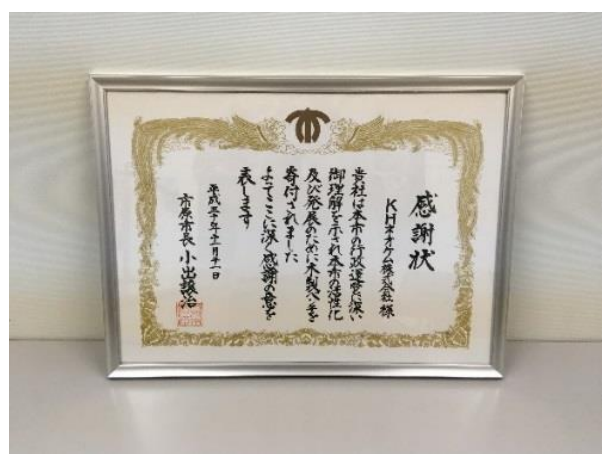 感謝状
KHネオケム株式会社 様
貴社は本市の行政運営に深い
御理解を示され本市の活性化
及び発展のために木製ベンチを
寄付されました
よってここに深く感謝の意を
表します
平成三十年十二月十一日
市原市長 小出譲治